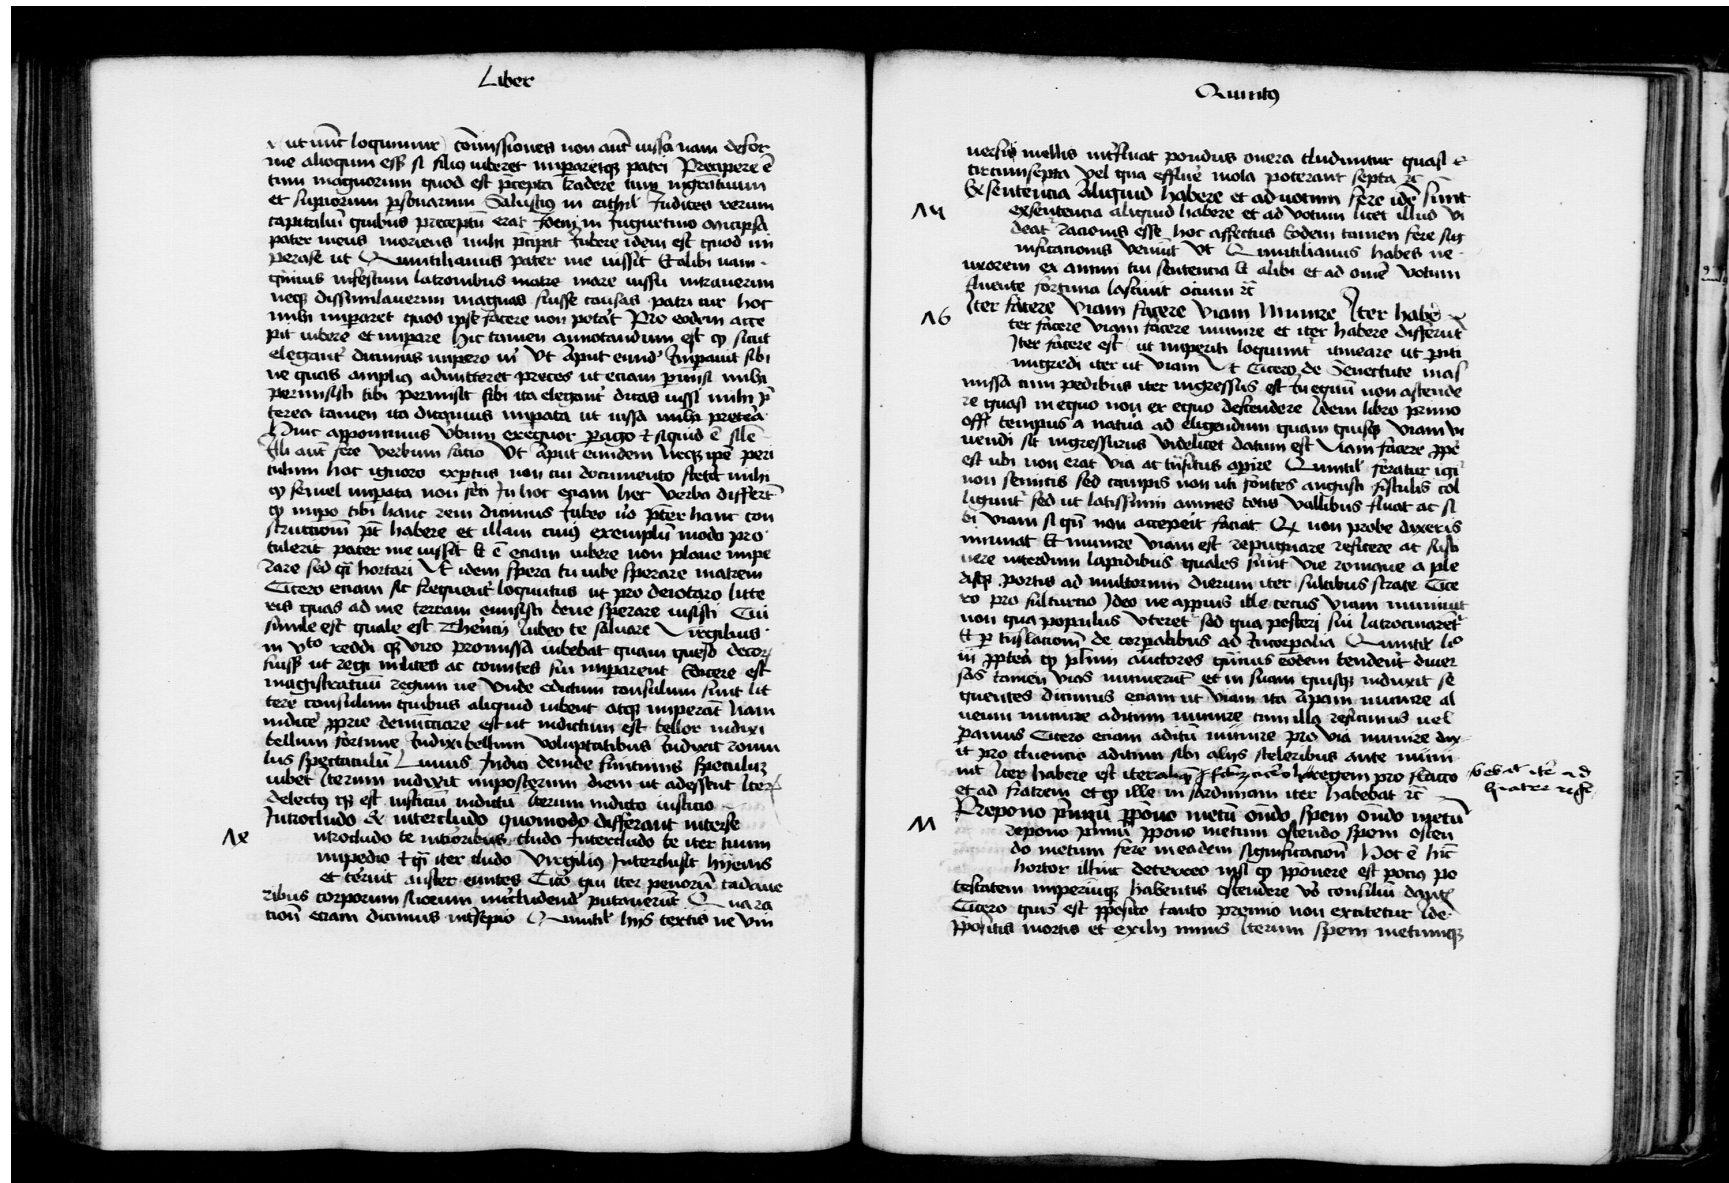 Liber
ut nūc loquimur comissiones non aūt iussa nam defor
me alioquin esß si filiꝯ iuberet imparetqꝫ patri Precipere ē
tum magnorum quod est p̄cepta tradere tum ingratuum
et supiorum psonarum Salustiꝯ in cathil Iudices rerum
capitaliū quibus preceptū erat Idem in Iugurtino micipsa
pater meus moriens mihi p̄cipit Iubere idem est quod im
perase ut Quintilianus pater me iussit Et alibi nam
quius infestum latronibus mare mare iussu intraverim
neqꝫ dissimulaverim magnas fuisse causas patri cur hoc
mihi imparet quod ipse facere non potat Pro eodem acce
pit iubere et impare hic tamen annotandum est ꝙ sicut
eleganť dicimus impero in Vt aput eund Impauit sibi
ne quas ampliꝯ admitteret preces ut eciam pmisi mihi
permisisti tibi permisit sibi ita eleganť dicas iussi mihi p̄
terea tamen ita dicimus impata ut iussa mihi pretea
Huic apponimus Vbum exequor pago et siquid ē silē
Illi aūt fere verbum facio Vt aput eundem Neqꝫ ipe peri
culum hoc ignoro expertus non cui documento stetit mihi
ꝙ semel impata non feci In hoc eciam hec verba differt
ꝙ impo tibi hanc rem dicimus Iubeo ūo p̄ter hanc con
structionm pt habere et illam cuiꝯ exemplū modo pro
tulerit pater me iussit Et ē eciam iubere non plane impe
rare sed q̄i hortari Vt idem spera tu iube sperare matrem
Cicero eciam sic frequent loquutus ut pro deiotaro litte
ris quas ad me tercam emisisti bene sperare iusisti Cui
simile est quale est Therēcij Iubeo te saluare Virgilius
in vto reddi qꝫ viro promissa iubebat quam queso decor
fuisß ut regi milites ac comites sui imparent Edicere est
magistratuū regum ne Unde edictum consulum sunt lit
tere consulum quibus aliquid iubent atqꝫ imperāt Nam
indice pprie denūciare est ut indictum est bellor indixi
bellum fortune Indixi bellum voluptatibus Indixit romu
lus spectaculū Livius Indici deinde finitimis spectaculꝫ
iubet Iterum indixit imposterum diem ut adessent Iter
delectꝯ qꝫ est iusticiū indictū Iterum indicto iusticio
Introcludo & intercludo quomodo differant interse
ntrocludo te intiōribus cludo Intercludo te iter tuum
impedio et q̄i iter cludo Virgiliꝯ Interclusit hijemis
et terruit auster euntes Cicō qui iter penorū cadaue
ribus corporum suorum intcludend putauerūt Qua ra
tionē eciam dicimus intsepio Quintil hijs textis ne vin
Λx
Quintꝯ
versis mellis intfluat pondus onera cluduntur quasi
circumsepta vel qua effluē mola poterant septa rc
Ex sentencia aliquid habere et ad votum fere idē sūnt
Λ4
exsentencia aliquid habere et ad votum licet illud vi
deāt racionis esse hoc affectus Eodem tamen fere sig
nificacionis veniūt Vt Quintilianus habes ne
uxorem ex animi tui sentencia Et alibi et ad omē votum
fluente fortuna lasciuit ocium rc
Iter facere Viam facere Viam Munire Iter habē
Λ6
ter facere viam facere munire et iter habere differūt
Iter facere est ut imperiti loquūnt itineare ut piti
ingredi iter ut viam Vt Cicero de Senectute mas
nissa cum pedibus iter ingressus est In equū non ascende
re quasi in equo non ex equo descendere Idem libro primo
offi tempus a natua ad eligendum quam quisqꝫ viam vi
uendi sit ingressurus videlicet datum est Viam facere ppe
est ubi non erat via ac tūsitus apire Quintil feratur igi
non semitis sed campis non uti fontes angusti fistulis col
ligunt sed ut latissimi amnes totis vallibus fluat ac si
bi viam si qn̄ non acceperit faciat Qx non probe dixeris
muniat Et munire viam est repugnare reficere ac susti
nere interdum lapidibus quales sunt vie romane a ple
risqꝫ portis ad multorum dierum iter silicibus strate Cice
ro pro fulturcio Ideo ne appius ille cecus viam muniuit
non qua populus vteret sed qua posteri sui latrocinaret
Et p tūslacionm de corpalibus ad Incorpalia Quintil lio
iii pptea ꝙ plīm auctores quius eodem tendent diuer
sas tamen vias muniuerūt et in suam quisqꝫ induxit se
quentes dicimus eciam ut viam ita ripam munire al
ueum munire aditum munire cum illa reficimus uel
pamus Cicero eciam aditū munire pro via munire dix
it pro cluencio aditum sibi alijs sceleribus ante muni
uit Iter habere est iter regem pro flacco
et ad fratrem et ꝙ ille in sardiniam iter habebat rc
bebat iter ad
frater
Prepono pmiū ppono metū oñdo spem oñdo metū
Λ1
repono pmiū ppono metum ostendo spem osten
do metum fere in eadem significacionē Hoc ē hic
hortor illinc deterreo nisi ꝙ pponere est pociꝯ po
testatem imperiumqꝫ habentis ostendere vo consiliū
Cicero quis est pposito tanto premio non excitetur Ide
ppositis mortis et exilij minis Iterum spem metumqꝫ